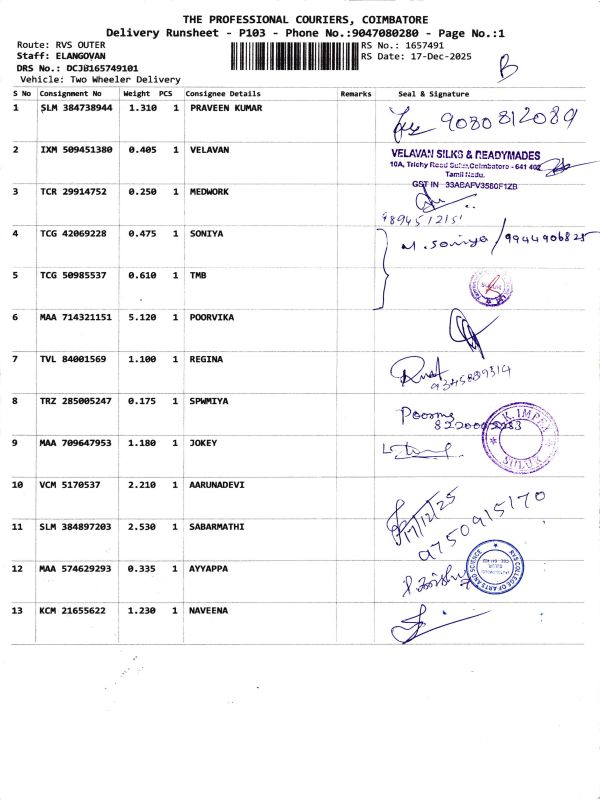 THE PROFESSIONAL COURIERS, COIMBATORE
Delivery Runsheet - P103 - Phone No.:9047080280 - Page No.:1
Route: RVS OUTER
RS No.: 1657491
Staff: ELANGOVAN
RS Date: 17-Dec-2025
DRS No.: DCJB165749101
B
Vehicle: Two Wheeler Delivery
S No Consignment No Weight PCS Consignee Details Remarks Seal & Signature
1 SLM 384738944 1.310 1 PRAVEEN KUMAR 9080812089
2 IXM 509451380 0.405 1 VELAVAN
VELAVAN SILKS & READYMADES
10A, Trichy Road Sulur, Coimbatore - 641 402
Tamil Nadu.
GST IN 33ABAFV3560F1ZB
3 TCR 29914752 0.250 1 MEDWORK
9894512151
4 TCG 42069228 0.475 1 SONIYA M. Soniya / 9944906825
5 TCG 50985537 0.610 1 TMB
6 MAA 714321151 5.120 1 POORVIKA
7 TVL 84001569 1.100 1 REGINA
9345839314
8 TRZ 285005247 0.175 1 SPWMIYA
K. IMPEX
SULUR
9 MAA 709647953 1.180 1 JOKEY
10 VCM 5170537 2.210 1 AARUNADEVI
17/12/25
11 SLM 384897203 2.530 1 SABARMATHI
9750915170
12 MAA 574629293 0.335 1 AYYAPPA
RVS COLLEGE OF ARTS AND SCIENCE
13 KCM 21655622 1.230 1 NAVEENA